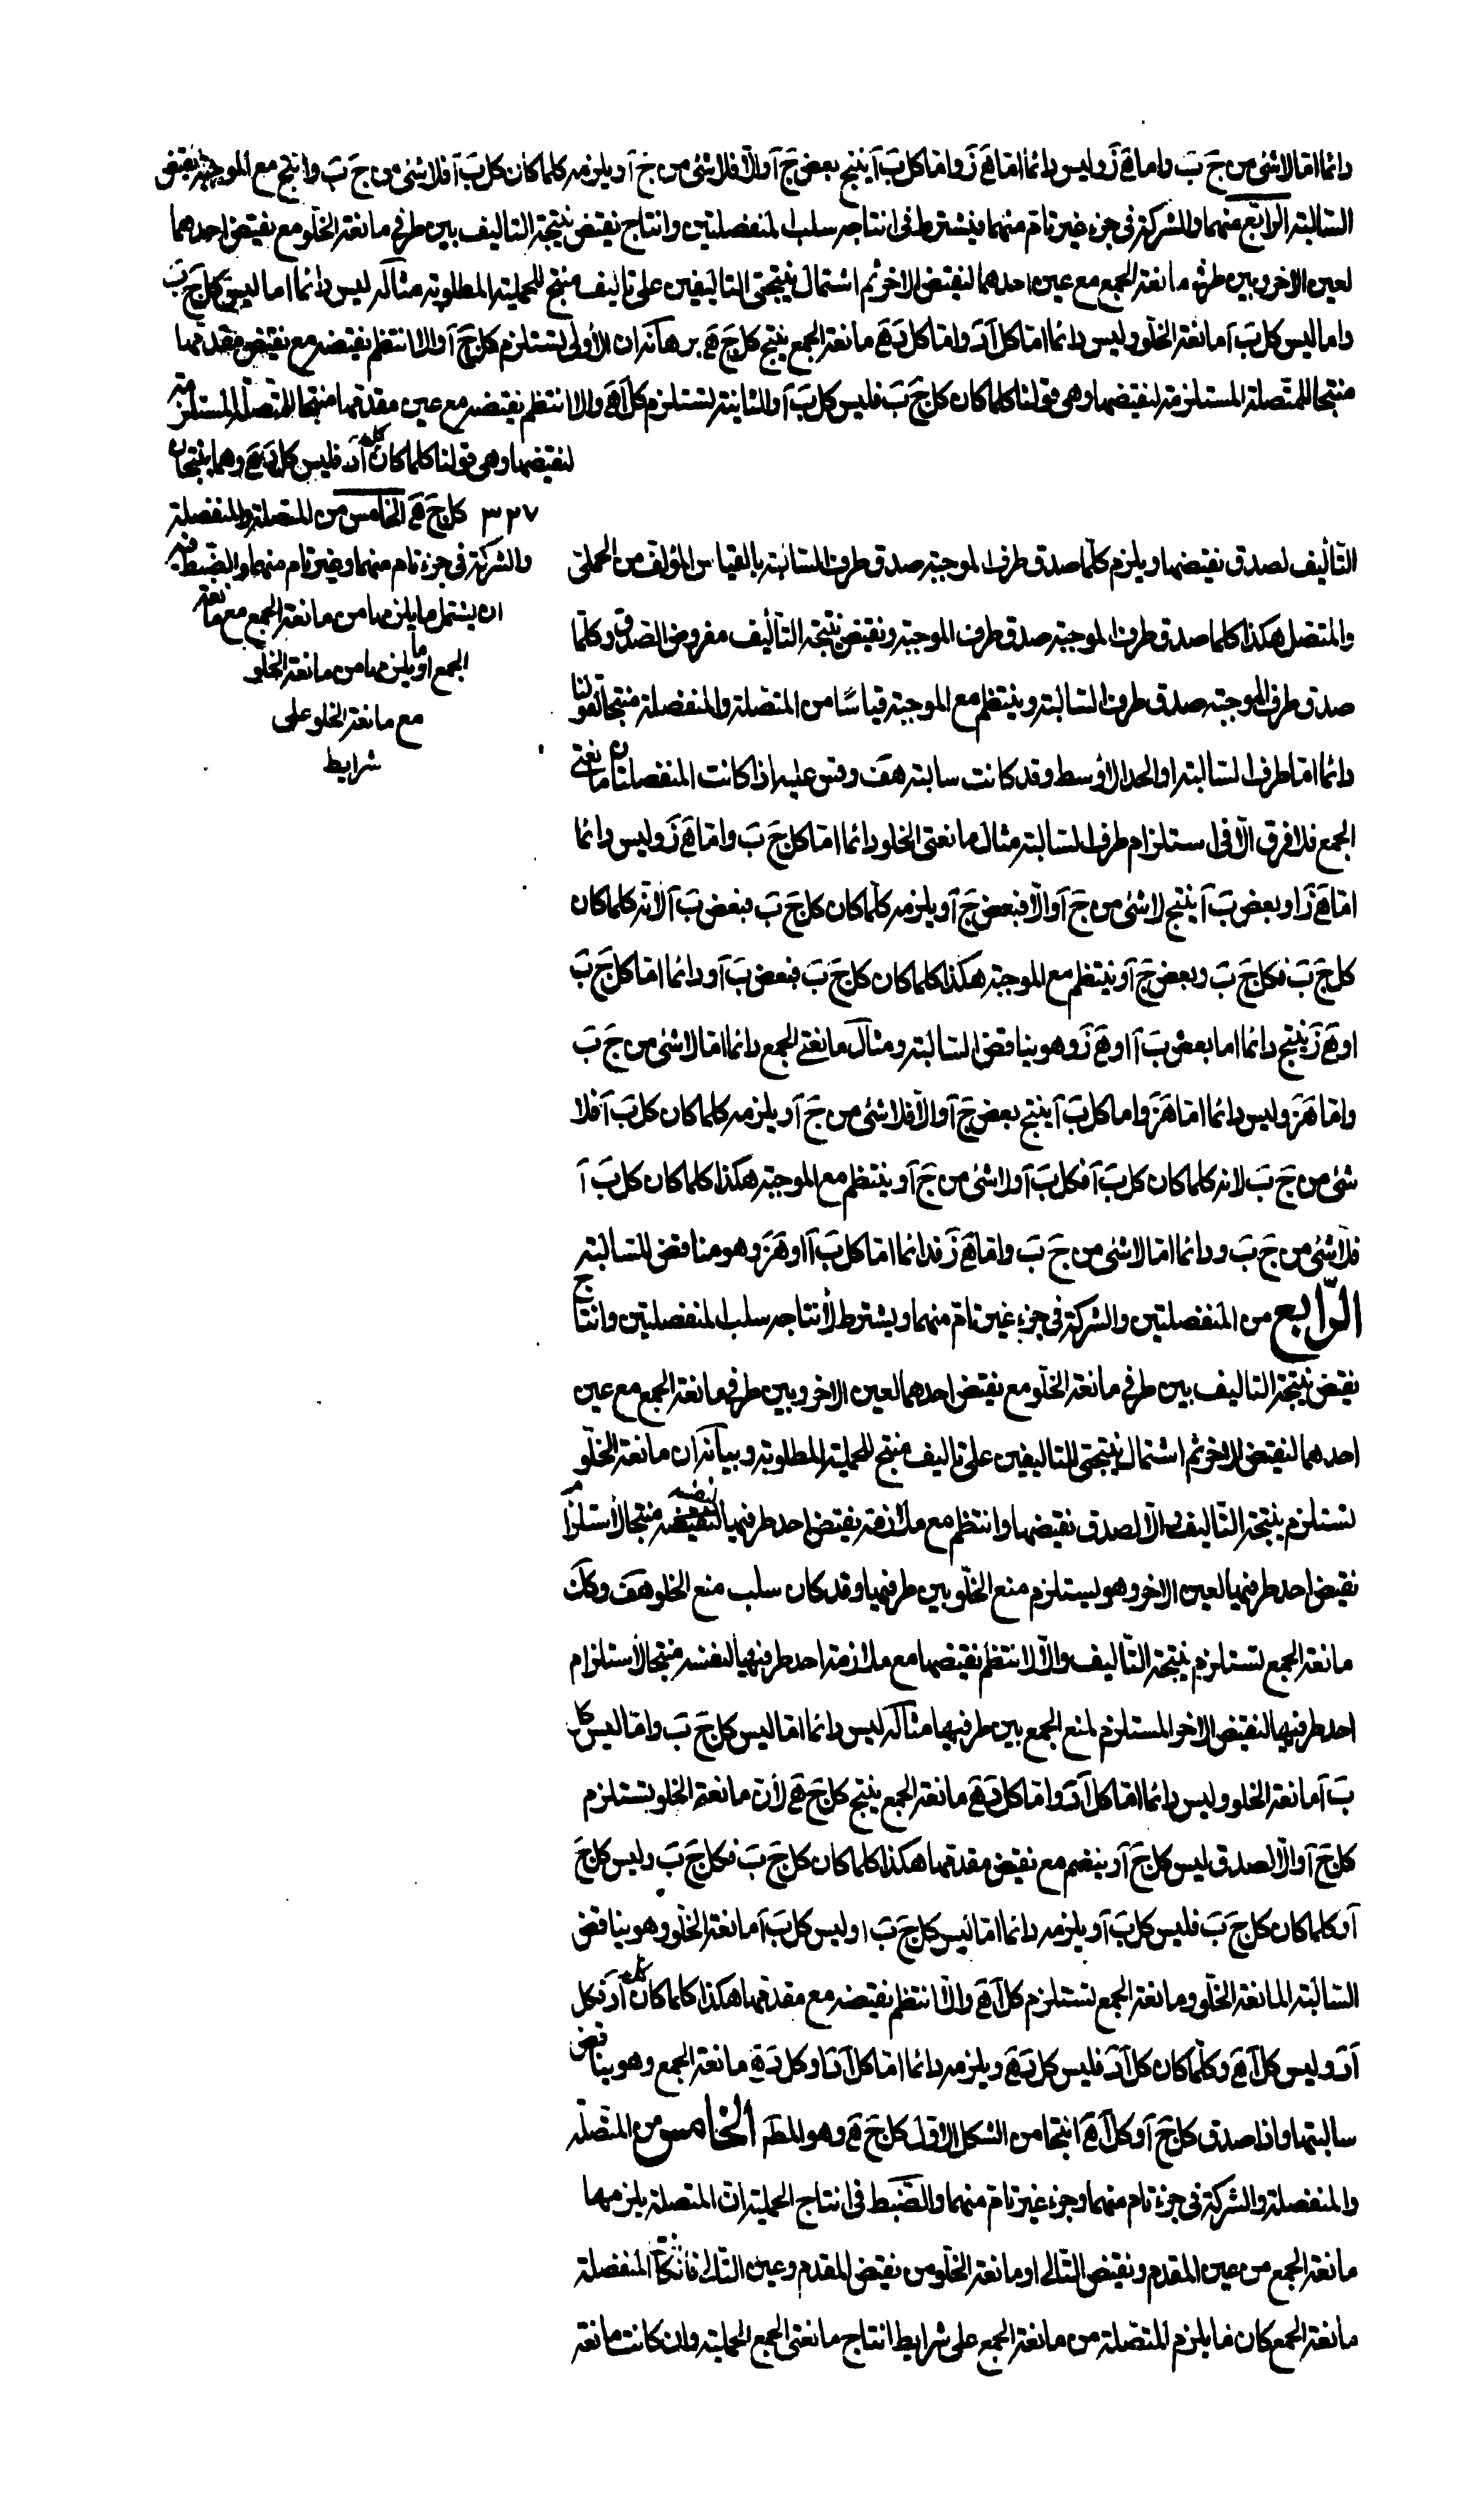 دائما اما لاشئ من ج ب واما ه ز وليس دائما اما ه ز واما كل ب آ ينتج بعض ج آ والا فلاشئ من ج آ ويلزمه كلما كان كل ب آ فلاشئ من ج ب وانتج مع الموجبة نقيض
السالبة الرابع منهما والشركة فى جزء غير تام منهما فيشترط فى انتاجه سلب المنفصلتين وانتاج نقيض نتيجة التاليف بين طرفى مانعة الخلو مع نقيض احدهما
لعين الاخر وبين طرفى مانعة الجمع مع عين احدهما لنقيض الاخر ثم اشتمال نتيجتى التاليفين على تاليف منتج للحملية المطلوبة مثاله ليس دائما اما ليس كل ج ب
واما ليس كل ب آ مانعة الخلو وليس دائما اما كل آ د واما كل د ه مانعة الجمع ينتج كل ج ه برهانه ان الأولى تستلزم كل ج آ والا انتظم نقيضه مع نقيض مقدمها
منتجا للمتصلة المستلزمة لنقيضها وهى قولنا كلما كان كل ج ب فليس كل ب آ والثانية تستلزم كل آ ه والا انتظم نقيضه مع عين مقدمها منتجا للمتصلة المستلزمة
لنقيضها وهى قولنا كلما كان كل آ د فليس كل د ه وهما ينتجان
كل ج ه الخامس من المتصلة والمنفصلة ٣٣٧
والشركة فى جزء تام منهما وغير تام منهما والضبط فيه
ان يشتمل ما يلزمها من مانعة الجمع مع مانعة
الجمع او ما يلزمها من مانعة الخلو
مع مانعة الخلو على
شرايط
التأليف لصدق نقيضها ويلزم كلما صدق طرف الموجبة صدق طرف السالبة بالقياس المؤلف من الحملى
والمتصل هكذا كلما صدق طرف الموجبة صدق طرف الموجبة ونقيض نتيجة التأليف مفروض الصدق وكلما
صدق طرف الموجبة صدق طرف السالبة وينتظم مع الموجبة قياسًا من المتصلة والمنفصلة منتجا لقولنا
دائما اما طرف السالبة او الحد الأوسط وقد كانت سالبة هف وقس عليه اذا كانت المنفصلتان مانعتى
الجمع فلا فرق الّا فى استلزام طرف السالبة مثال مانعتى الخلو دائما اما كل ج ب واما ه ز وليس دائما
اما ه ز او بعض ب آ ينتج لاشئ من ج آ والّا فبعض ج آ ويلزمه كلما كان كل ج ب فبعض ب آ لانّه كلما كان
كل ج ب فكل ج ب وبعض ج آ وينتظم مع الموجبة هكذا كلما كان كل ج ب فبعض ب آ ودائما اما كل ج ب
او ه ز ينتج دائما اما بعض ب آ او ه ز وهو يناقض السالبة ومثال مانعتى الجمع دائما اما لاشئ من ج ب
واما ه ز وليس دائما اما ه ز واما كل ب آ ينتج بعض ج آ والّا فلاشئ من ج آ ويلزمه كلما كان كل ب آ فلا
شئ من ج ب لانه كلما كان كل ب آ فكل ب آ ولاشئ من ج آ وينتظم مع الموجبة هكذا كلما كان كل ب آ
فلاشئ من ج ب ودائما اما لاشئ من ج ب واما ه ز فدائما اما كل ب آ او ه ز وهو مناقض للسالبة
الرّابع من المنفصلتين والشركة فى جزء غير تامّ منهما ويشترط لأنتاجه سلب المنفصلتين وانتاج
نقيض نتيجة التاليف بين طرفى مانعة الخلّو مع نقيض احدهما لعين الاخر وبين طرفى مانعة الجمع مع عين
احدهما لنقيض الاخر ثم اشتمال نتيجتى التاليفين على تاليف منتج للحملية المطلوبة وبيانه ان مانعة الخلّو
تستلزم نتيجة التّاليف والّا لصدق نقيضها وانتظم مع ملازمة نقيض احد طرفيها لنفسه منتجا لأستلزام
نقيض احد طرفيها لعين الاخر وهو يستلزم منع الخلّو بين طرفيها وقد كان سلب منع الخلو هف وكك
مانعة الجمع تستلزم نتيجة التّاليف والّا لانتظم نقيضها مع ملازمة احد طرفيها لنفسه منتجا لأستلزام
احد طرفيها لنقيض الاخر المستلزم لمنع الجمع بين طرفيها مثاله ليس دائما اما ليس كل ج ب واما ليس كل
ب آ مانعة الخلو وليس دائما اما كل آ د واما كل د ه مانعة الجمع ينتج كل ج ه لأن مانعة الخلو يستلزم
كل ج آ والّا لصدق ليس كل ج آ وينضم مع نقيض مقدمها هكذا كلما كان كل ج ب فكل ج ب وليس كل ج
آ وكلما كان كل ج ب فليس كل ب آ ويلزمه دائما اما ليس كل ج ب او ليس كل ب آ مانعة الخلّو وهو يناقض
السّالبة المانعة الخلّو ومانعة الجمع تستلزم كل آ ه والّا انتظم نقيضه مع مقدمها هكذا كلما كان كل آ د فكل
آ د وليس كل آ ه وكلّما كان كل آ د فليس كل د ه ويلزمه دائما اما كل آ د او كل د ه مانعة الجمع وهو يناقض
سالبتها واذا صدق كل ج آ وكل آ ه انتجا من الشكل الاول كل ج ه وهو المط الخامس من المتّصلة
والمنفصلة والشركة فى جزء تام منهما وجزء غير تامّ منهما والضّبط فى انتاج الحملية ان المتصلة يلزمها
مانعة الجمع من عين المقدم ونقيض التّالى او مانعة الخلّو من نقيض المقدم وعين التّالى فان كانت المنفصلة
مانعة الجمع كان ما يلزم المتصّلة من مانعة الجمع على شرايط انتاج مانعتى الجمع الحملية وان كانت مانعة